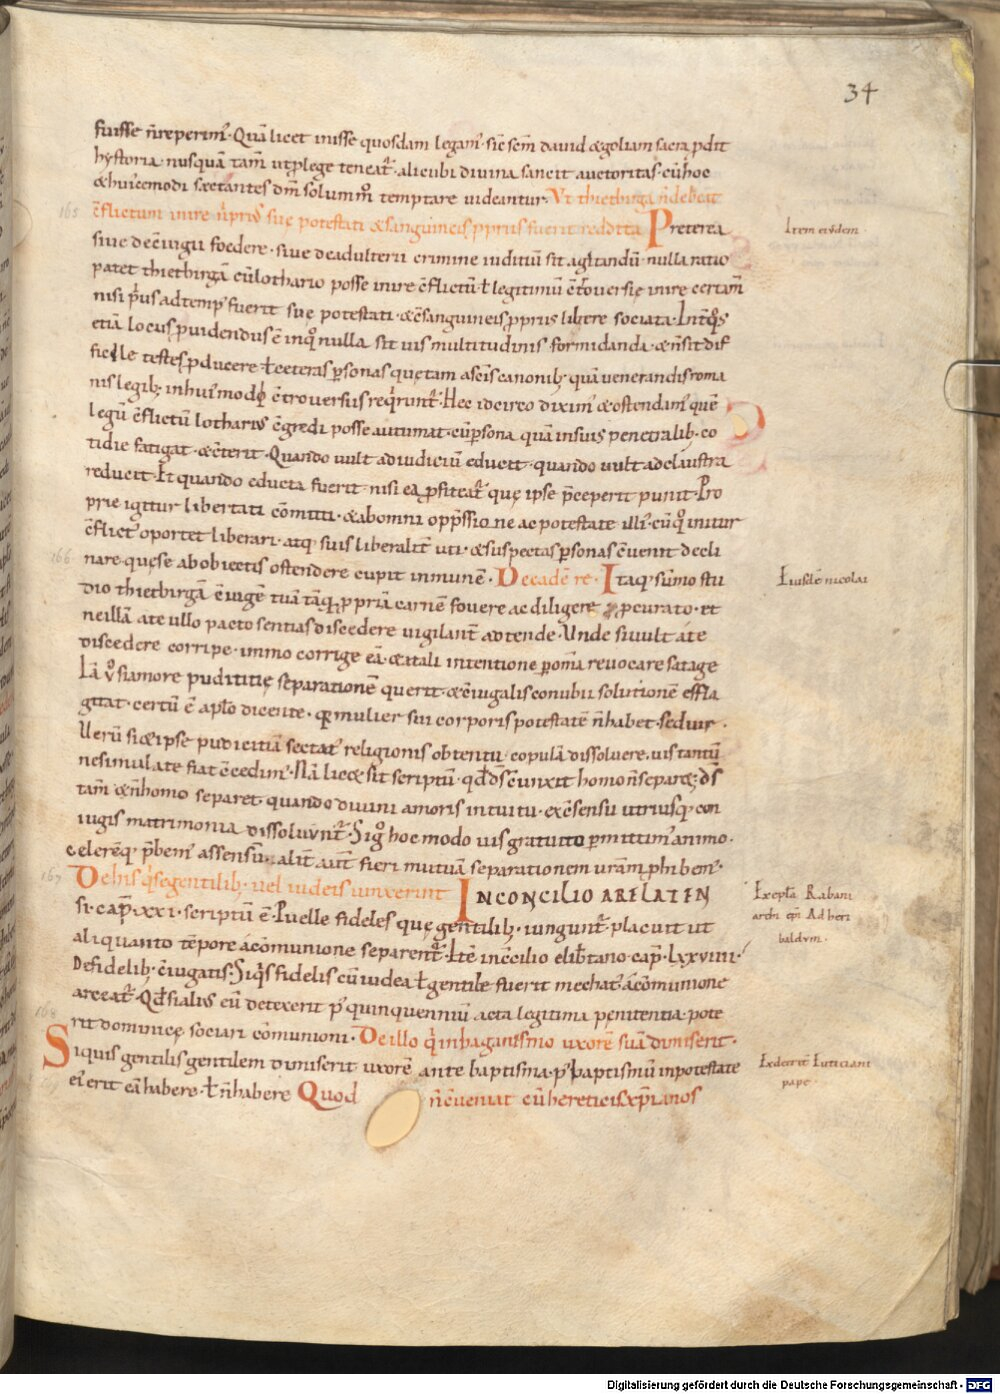 34
fuisse n̄ reperim̄. Quā licet inisse quosdam legam̄. sic̄ sc̄m david & goliam sacra ꝓdit
hystoria. nusquā tam̄ ut ꝓ lege teneat̄. alicubi divina sancit auctoritas. cū hoc
& huiꝰcemodi sectantes dm̄ solum̄m̊ temptare videantur. Ut thietbirga n̄ debeat
165 c̄flictum inire n̄ priꝰ suę potestati & sanguineis ꝓpriis fuerit reddita Preterea Item eiꝰdem
sive de c̄iugii foedere. sive de adulterii crimine iudiciū sit agitandū. nulla ratio
patet thietbirgā cū lothario posse inire c̄flictū ł legitimū c̄troversię inire certam̄
nisi p̄us ad temp̄ fuerit suę potestati. & c̄sanguineis ꝓpriis libere sociata. Int̄ q̄s
etiā locus ꝓvidendus ē in q̊ nulla sit vis multitudinis formidanda. & n̄ sit dif
ficile testes ꝓducere ł ceteras ꝑsonas quę tam a sc̄is canonib; quā venerandis roma
nis legib; in huiꝰmodi c̄troversiis req̄runt̄. Hęc idcirco diximꝰ & ostendam̄ quē
legū c̄flictū lothariꝰ c̄gredi posse autumat. cū ꝑsona quā in suis penetralib; co
tidie fatigat. & c̄terit. Quando vult ad iudiciū educit. quando vult ad claustra
reducit. Et quando educta fuerit. nisi ea ꝓfiteat̄ quę ipse p̄ceperit punit. Pro
prie igitur libertati cōmitti. & ab omni opp̄ssione ac potestate illiꝰ. cū q̊ initur
c̄flictꝰ oportet liberari. atq; suis liberalit̄ uti. & suspectas ꝑsonas c̄venit decli
166 nare. quę se ab obiectis ostendere cupit inmunē. De eadē re. Itaq; sūmo stu Eiusdē nicolai
dio thietbirgā c̄iugē tuā tāq; ꝓpriā carnē fovere ac diligere ꝓcurato. et
ne illā a te ullo pacto sentias discedere vigilant̄ adtende. Unde si vult a te
discedere corripe. immo corrige eā. & a tali intentione ꝑ om̄a revocare satage
Iā v̊ si amore pudicitię separationē querit. & c̄iugalis conubii solutionē effla
gitat. certū ē aplo dicente. qꝫ mulier sui corporis potestatē n̄ habet. sed vir.
Verū si & ipse pudicitiā sectat̄ religionis obtentu copulā dissolvere. vis tantū
ne simulate fiat c̄cedimꝰ. Nā licet sit scriptū. qđ ds̄ c̄iunxit homo n̄ separet; ds̄
tam̄ & n̄ homo separet. quando divini amoris intuitu. ex c̄sensu utriusq; con
iugis matrimonia dissolvunt̄. Sig̊ hoc modo vis gratuito ꝑmittimꝰ animo.
celerēq; p̄bemꝰ assensū. alit̄ aut̄ fieri mutuā separationem vr̄am ꝓhibemꝰ.
167 De his q̄ se gentilib; vel iudeis iunxerint IN CONCILIO ARELATEN Ex epl̄a Rabani
si. cap̄. xxi. scriptū ē. Puelle fideles quę gentilib; iungunt̄. placuit ut archi epi ad heri
aliquanto tēpore a cōmunione separent̄. Itē in c̄cilio elib̄tano cap̄. lxxviiii. baldum.
De fidelib; c̄iugatis. Siq̄s fidelis cū iudea ł gentile fuerit mechatꝰ a cōmunione
arceat̄. Qđ si aliꝰ eū detexerit p̄ quinquenniū acta legitima penitentia. pote
168 rit dominicę sociari cōmunioni. De illo q̄ in paganismo uxorē suā dimiserit.
Siquis gentilis gentilem dimiserit uxorē ante baptisma. p̄ baptismū in potestate Ex decretꝭ Euticiani
eiꝰ erit eā habere. ł n̄ habere Quod n̄ c̄veniat cū hereticis xp̄ianos pape.
Digitalisierung gefördert durch die Deutsche Forschungsgemeinschaft - DFG